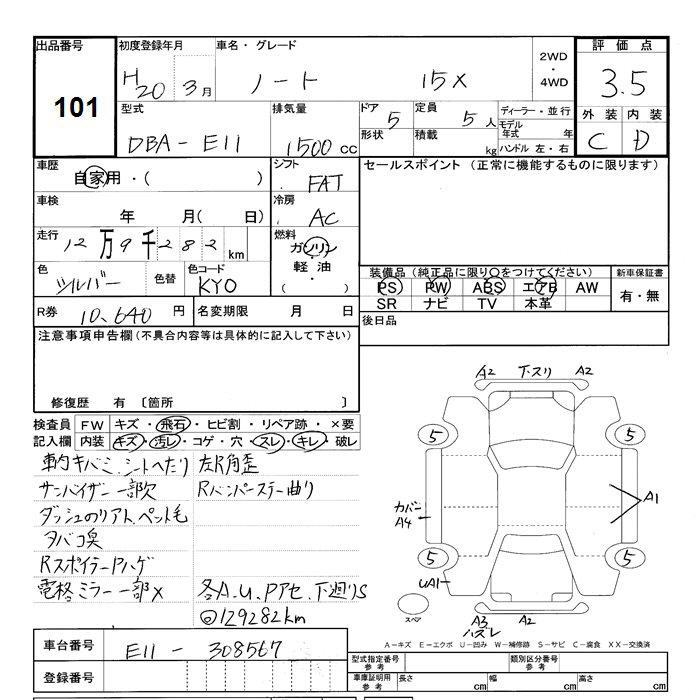 出品番号
101
初度登録年月
H20 3月
車名・グレード
ノート 15X
2WD
・
4WD
評価点
3.5
外装 内装
C D
型式
DBA-E11
排気量
1500cc
ドア 5
形状
定員 5人
積載 kg
ディーラー・並行
モデル年式 年
ハンドル 左・右
車歴
自家用・( )
シフト
FAT
セールスポイント (正常に機能するものに限ります)
車検
年 月( 日)
冷房
AC
走行
12万9千282km
燃料
ガソリン
軽油
( ・ )
色
シルバー
色替
色コード
KYO
装備品(純正品に限り○をつけてください)
PS PW ABS エアB AW
SR ナビ TV 本革
新車保証書
有・無
R券 10,640 円
名変期限 月 日
後日品
注意事項申告欄(不具合内容等は具体的に記入して下さい)
修復歴 有 〔箇所 〕
検査員記入欄
FW キズ・飛石・ヒビ割・リペア跡・×要
内装 キズ・汚レ・コゲ・穴・スレ・キレ・破レ
車内キバミ、シートヘタリ
サンバイザー一部欠
タバコ臭
RスポイラーPハゲ
電格ミラー一部×
Rバンパーステー曲り
各A.U.Pアセ.下廻りS
129282km
A2 下スリ A2
5 5
カバー
A4
A1
5 5
UA1
スペア
A3 A2
ハズレ
A-キズ E-エクボ U-凹み W-補修跡 S-サビ C-腐食 XX-交換済
車台番号 E11-308567
登録番号
型式指定番号
参考
類別区分番号
参考
車庫証明用
参考
長さ cm 幅 cm 高さ cm